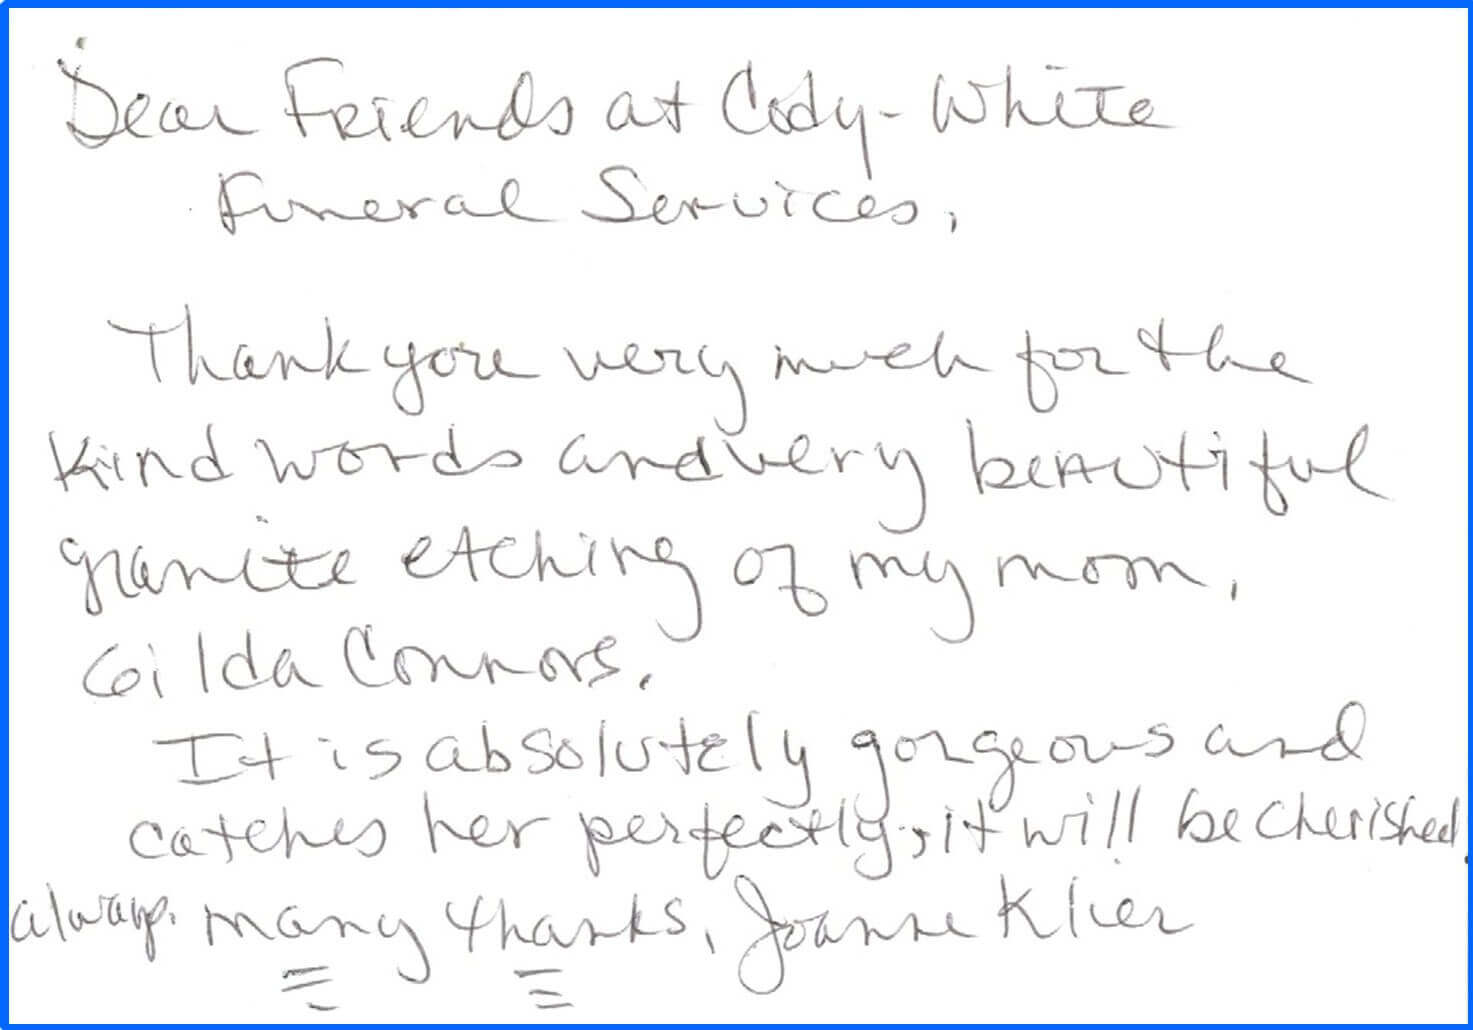 Dear Friends at Cody-White
Funeral Services,
Thank you very much for the
kind words and very beautiful
granite etching of my mom,
Gilda Connors.
It is absolutely gorgeous and
catches her perfectly, it will be cherished
always. Many thanks, Joanne Klier